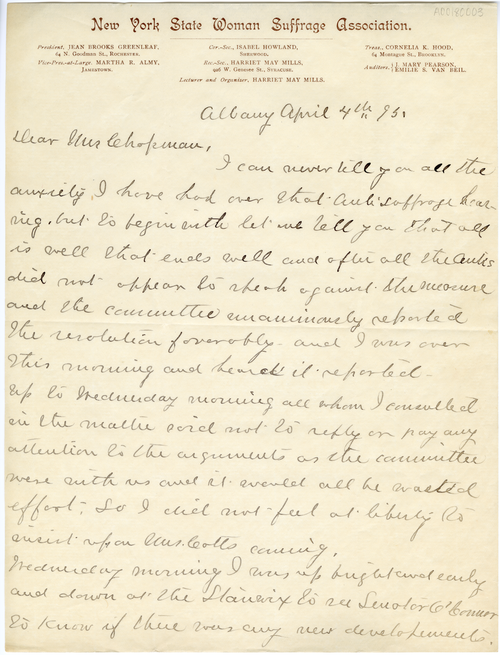 A00180003
New York State Woman Suffrage Association.
President, JEAN BROOKS GREENLEAF,
64 N. Goodman St., Rochester.
Vice-Pres.-at-Large, MARTHA R. ALMY,
Jamestown.
Cor.-Sec., ISABEL HOWLAND,
Sherwood.
Rec.-Sec., HARRIET MAY MILLS,
926 W. Genesee St., Syracuse.
Treas., CORNELIA K. HOOD,
64 Montague St., Brooklyn.
Auditors, { J. MARY PEARSON,
EMILIE S. VAN BEIL.
Lecturer and Organizer, HARRIET MAY MILLS.
Albany April 4th 95.
Dear Mrs Chapman,
I can never tell you all the
anxiety I have had over that Anti suffrage hear-
ing, but to begin with let me tell you that all
is well that ends well and after all the Antis
did not appear to speak against the measure
and the committee unanimously reported
the resolution favorably - and I was over
this morning and heard it reported -
Up to Wednesday morning all whom I consulted
in the matter said not to reply or pay any
attention to the arguments as the committee
were with us and it would all be wasted
effort; So I did not feel at liberty to
insist upon Mrs. Catts coming.
Wednesday morning I was up bright and early
and down at the Stanwix to see Senator O'Connor
to know if there was any new developements.